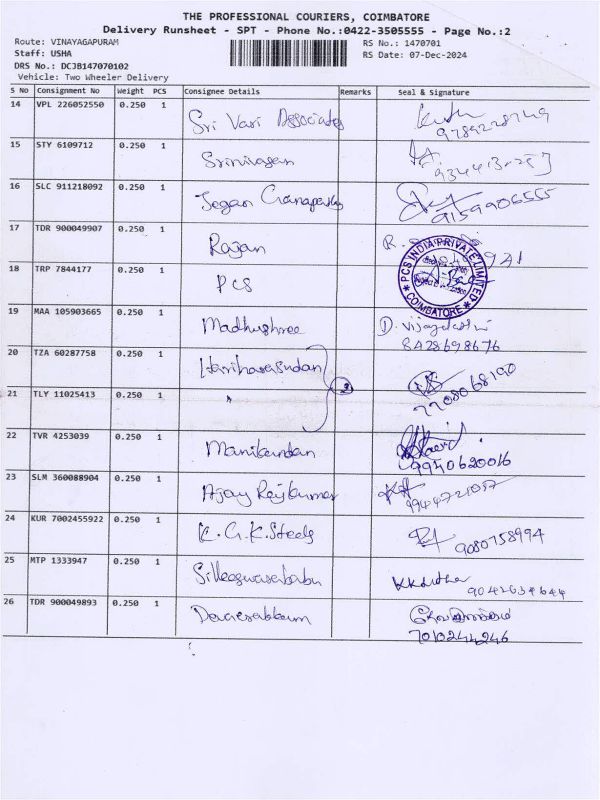 THE PROFESSIONAL COURIERS, COIMBATORE
Delivery Runsheet - SPT - Phone No.:0422-3505555 - Page No.:2
Route: VINAYAGAPURAM
RS No.: 1470701
Staff: USHA
RS Date: 07-Dec-2024
DRS No.: DCJB147070102
Vehicle: Two Wheeler Delivery
S No Consignment No Weight PCS Consignee Details Remarks Seal & Signature
14 VPL 226052550 0.250 1 Sri Vari Associates
15 STY 6109712 0.250 1 Srinivasan
16 SLC 911218092 0.250 1 Jegan Ganapathy
9159906555
17 TDR 900049907 0.250 1 Rajan
18 TRP 7844177 0.250 1 PCS
PCS INDIA PRIVATE LIMITED
* COIMBATORE *
19 MAA 105903665 0.250 1 Madhushree
8428698676
20 TZA 60287758 0.250 1 Hariharasudan
7708068190
21 TLY 11025413 0.250 1 "
22 TVR 4253039 0.250 1 Manikandan
9940620016
23 SLM 360088904 0.250 1 Ajay Rajkumar
24 KUR 7002455922 0.250 1 K.G.K.Steels
9080758994
25 MTP 1333947 0.250 1
26 TDR 900049893 0.250 1
7010244246